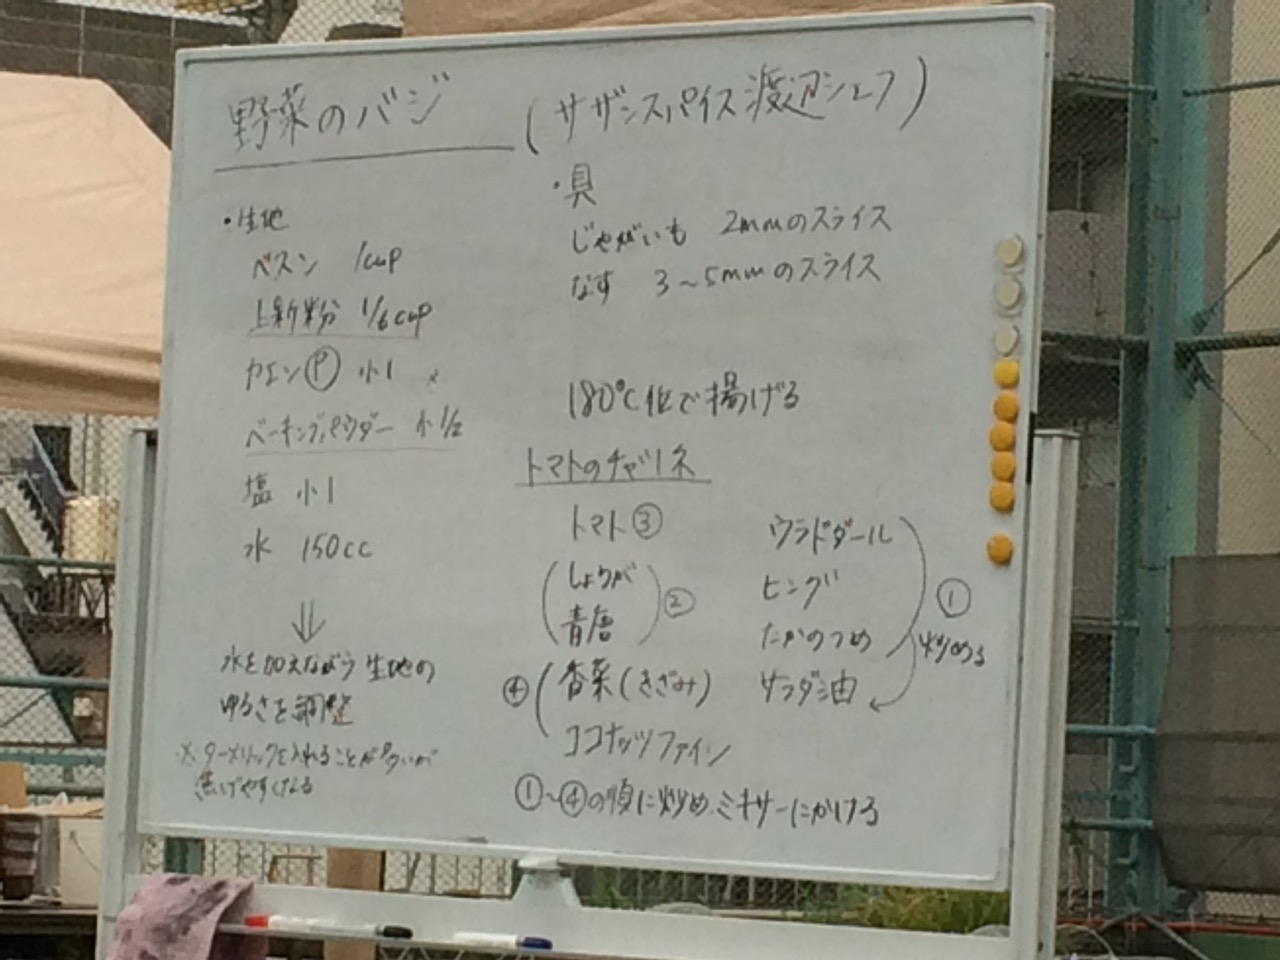 野菜のバジ
(サザンスパイス渡辺シェフ)
・生地
ベスン 1cup
上新粉 1/6cup
カエンⓅ 小1
ベーキングパウダー 小1/2
塩 小1
水 150cc
⇓
水を加えながら生地の
ゆるさを調整
※ターメリックを入れることが多いが
焦げやすくなる
・具
じゃがいも 2mmのスライス
なす 3〜5mmのスライス
180℃位で揚げる
トマトのチャトネ
トマト③
(しょうが
青唐)②
④(香菜(きざみ)
ココナッツファイン
ウラドダール
ヒング
たかのつめ
サラダ油
①
炒める
①〜④の順に炒め、ミキサーにかける